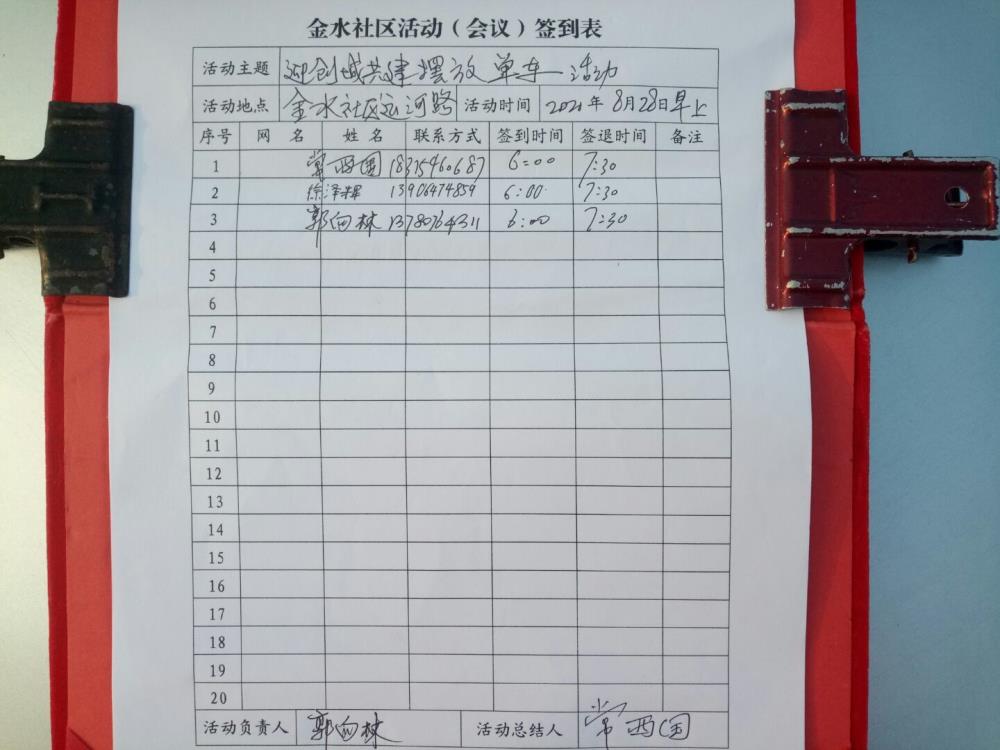 金水社区活动（会议）签到表
活动主题 迎创城共建摆放单车活动
活动地点 金水社区运河路 活动时间 2021年8月28日早上
序号 网 名 姓 名 联系方式 签到时间 签退时间 备注
1 常西国 18315460687 6:00 7:30
2 徐泽辉 13906474859 6:00 7:30
3 郭向林 13780764311 6:00 7:30
4
5
6
7
8
9
10
11
12
13
14
15
16
17
18
19
20
活动负责人 郭向林 活动总结人 常西国